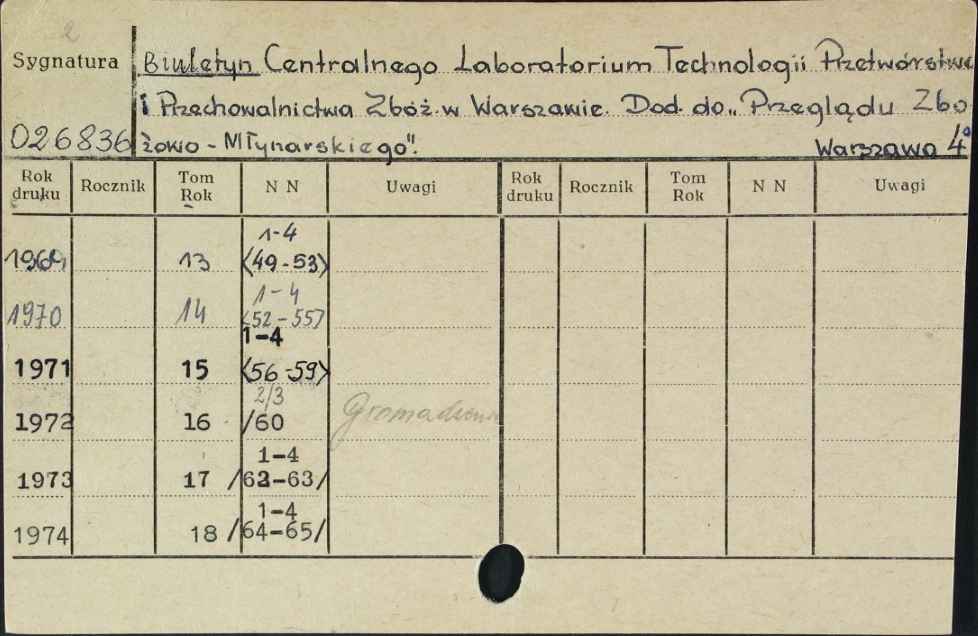 2
Sygnatura
Biuletyn Centralnego Laboratorium Technologii Przetwórstwa
i Przechowalnictwa Zbóż w Warszawie. Dod. do „Przeglądu Zbo
026836 żowo - Młynarskiego".
Warszawa 4°
Rok druku Rocznik Tom Rok N N Uwagi Rok druku Rocznik Tom Rok N N Uwagi
1-4
1969 13 (49-53)
1-4
1970 14 (52-55)
1-4
1971 15 (56-59)
2/3
1972 16 /60 Gromadzenie
1-4
1973 17 /62-63/
1-4
1974 18 /64-65/